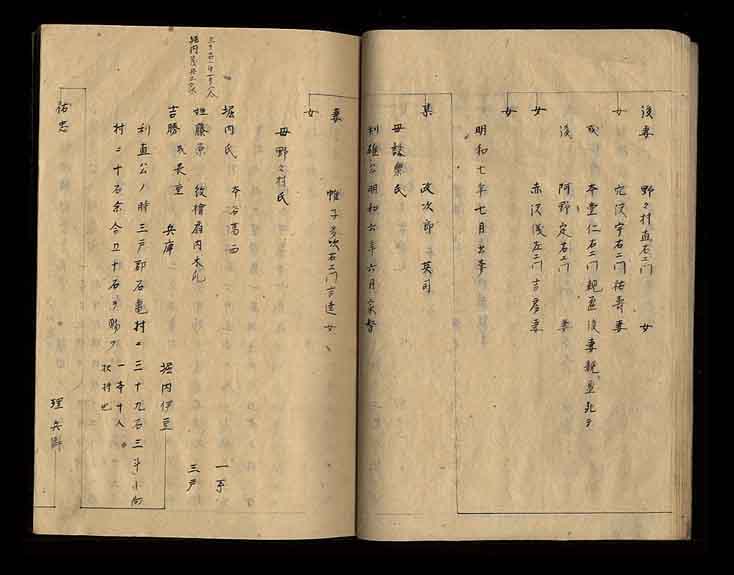 後妻 野々村直右エ門 女
女 穴沢宇右エ門祐寿妻
或 本堂仁右エ門親盈後妻親盈死ヲ
後 阿野定右エ門 妻
女 赤沢浅左エ門吉房妻
女
明和七年七月出奔
某 政次郎 英司
母設楽氏
利雄公明和六年六月家督
妻 帷子多次右エ門吉逵女
女
母野々村氏
堀内氏 本名葛西 一系
姓藤原 紋檜扇内木瓜 三戸
吉勝 兵庫 堀内伊豆
利直公ノ時三戸郡石亀村ニ三十九石三斗小向
村ニ十石余合五十石ヲ賜フ
一本十人
扶持也
祐忠 理兵衛